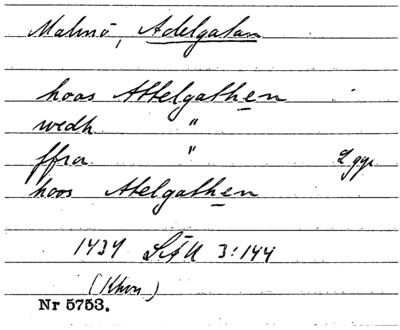 Malmö, Adelgatan
hoos Attelgathen
wedh "
ffra " 2 ggr
hoos Atelgathen
1437 3:144
(Khvn)
Nr 5753.